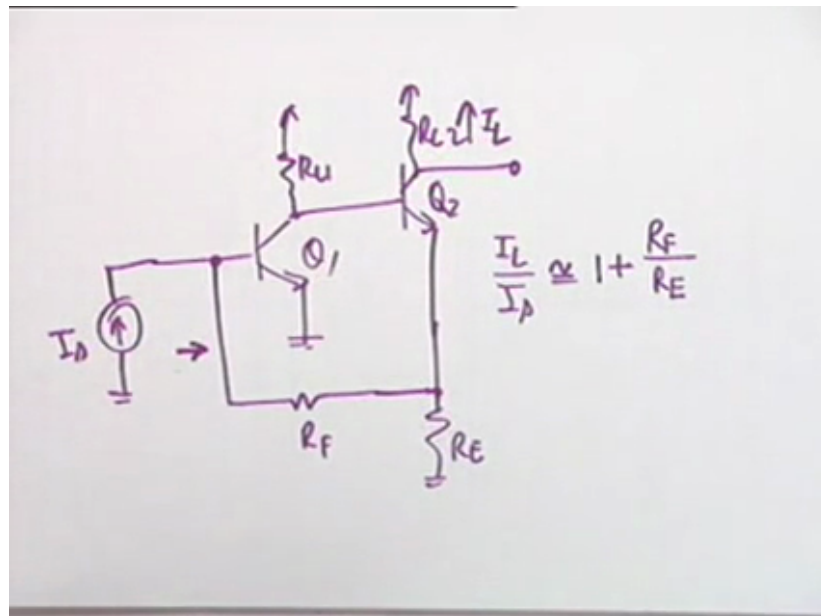 RL1
RL2 IL
Q2
Q1
IL/Is ≃ 1 + RF/RE
Is
RF
RE